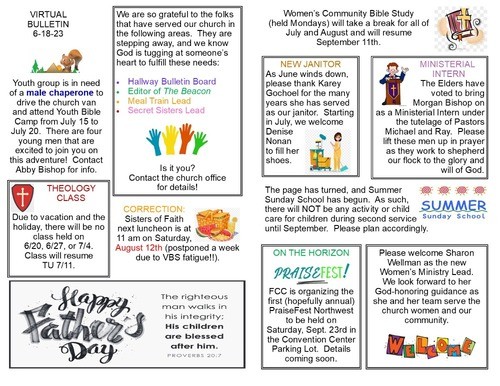 VIRTUAL
BULLETIN
6-18-23
Youth group is in need
of a male chaperone to
drive the church van
and attend Youth Bible
Camp from July 15 to
July 20. There are four
young men that are
excited to join you on
this adventure! Contact
Abby Bishop for info.
We are so grateful to the folks
that have served our church in
the following areas. They are
stepping away, and we know
God is tugging at someone's
heart to fulfill these needs:
Hallway Bulletin Board
Editor of The Beacon
Meal Train Lead
Secret Sisters Lead
Is it you?
Contact the church office
for details!
THEOLOGY
CLASS
Due to vacation and the
holiday, there will be no
class held on
6/20, 6/27, or 7/4.
Class will resume
TU 7/11.
CORRECTION:
Sisters of Faith
next luncheon is at
11 am on Saturday,
August 12th (postponed a week
due to VBS fatigue!!).
Happy
Father's
Day
The righteous
man walks in
his integrity;
His children
are blessed
after him.
PROVERBS 20:7
Women's Community Bible Study
(held Mondays) will take a break for all of
July and August and will resume
September 11th.
NEW JANITOR
As June winds down,
please thank Karey
Gochoel for the many
years she has served
as our janitor. Starting
in July, we welcome
Denise
Nonan
to fill
her
shoes.
MINISTERIAL
INTERN
The Elders have
voted to bring
Morgan Bishop on
as a Ministerial Intern under
the tutelage of Pastors
Michael and Ray. Please
lift these men up in prayer
as they work to shepherd
our flock to the glory and
will of God.
The page has turned, and Summer
Sunday School has begun. As such,
there will NOT be any activity or child
care for children during second service
until September. Please plan accordingly.
SUMMER
Sunday School
ON THE HORIZON
PRAISEFEST!
FCC is organizing the
first (hopefully annual)
PraiseFest Northwest
to be held on
Saturday, Sept. 23rd in
the Convention Center
Parking Lot. Details
coming soon.
Please welcome Sharon
Wellman as the new
Women's Ministry Lead.
We look forward to her
God-honoring guidance as
she and her team serve the
church women and our
community.
WELCOME